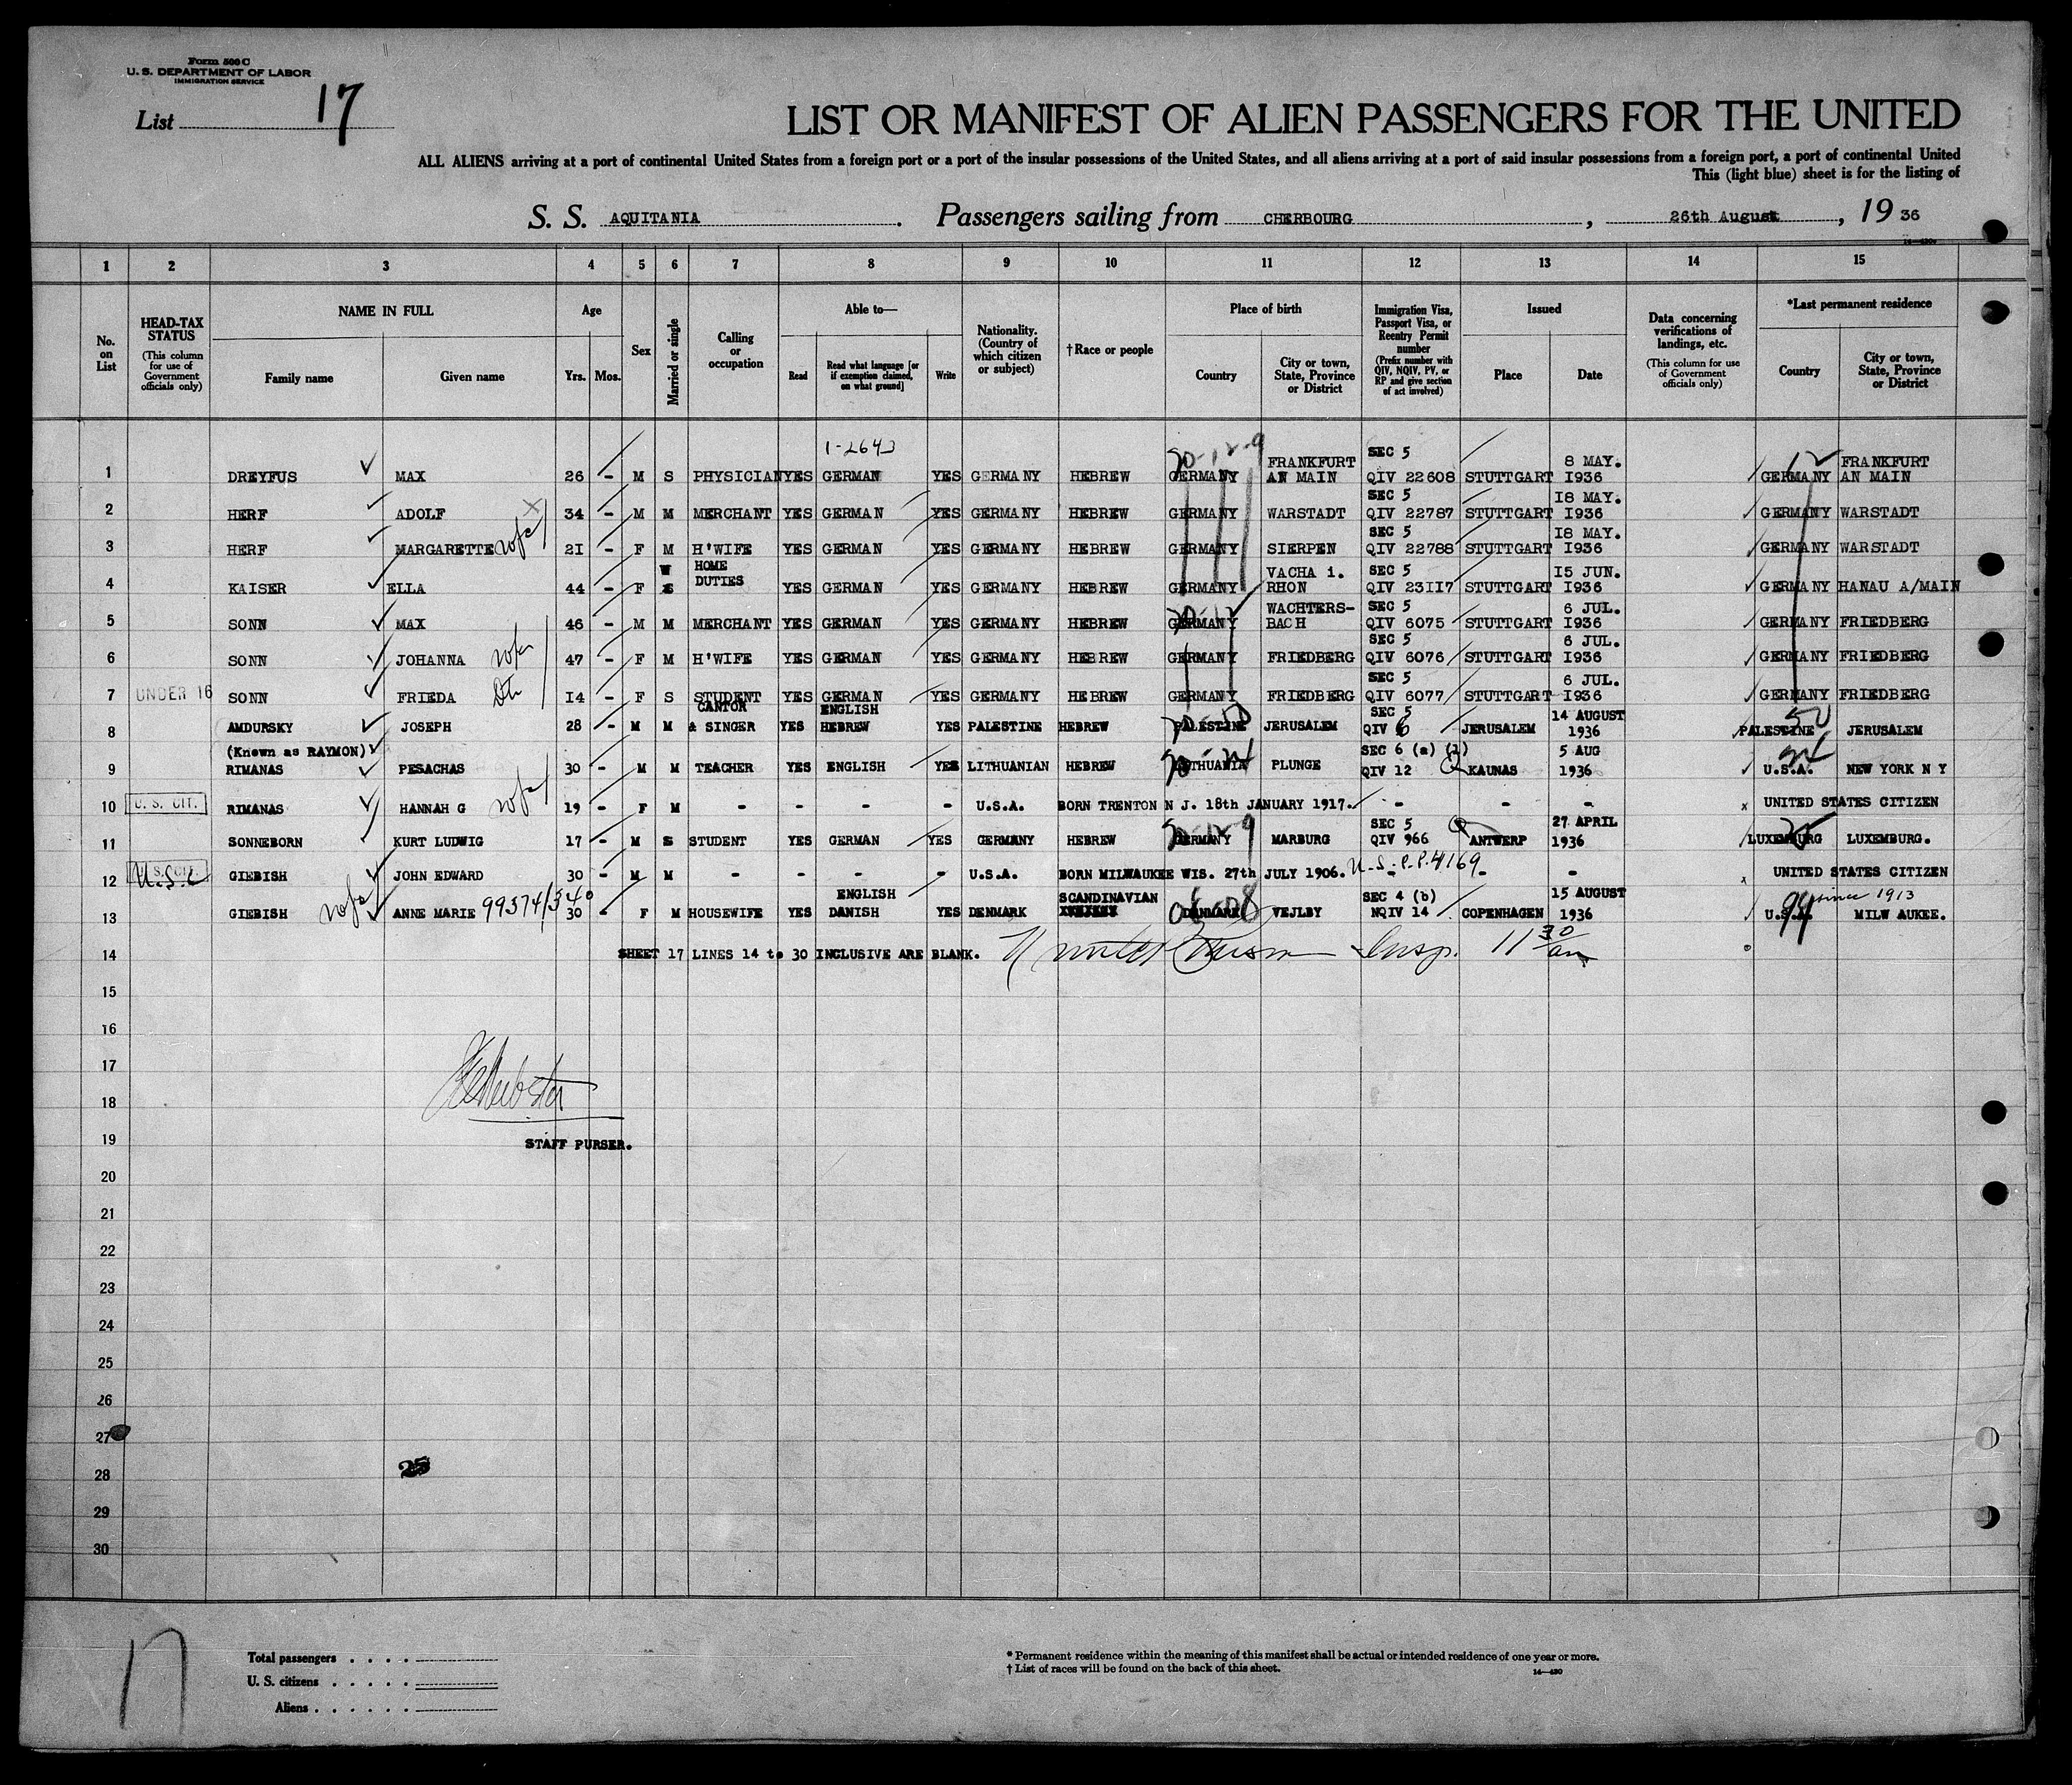 Form 500 C
U. S. DEPARTMENT OF LABOR
IMMIGRATION SERVICE
List 17
LIST OR MANIFEST OF ALIEN PASSENGERS FOR THE UNITED
ALL ALIENS arriving at a port of continental United States from a foreign port or a port of the insular possessions of the United States, and all aliens arriving at a port of said insular possessions from a foreign port, a port of continental United
This (light blue) sheet is for the listing of
S. S. AQUITANIA. Passengers sailing from CHERBOURG, 26th August, 19 36
1 2 3 4 5 6 7 8 9 10 11 12 13 14 15
No. on List
HEAD-TAX STATUS (This column for use of Government officials only)
NAME IN FULL
Family name Given name
Age
Yrs. Mos.
Sex
Married or single
Calling or occupation
Able to—
Read Read what language [or if exemption claimed, on what ground] Write
Nationality. (Country of which citizen or subject)
†Race or people
Place of birth
Country City or town, State, Province or District
Immigration Visa, Passport Visa, or Reentry Permit number (Prefix number with QIV, NQIV, PV, or RP and give section of act involved)
Issued
Place Date
Data concerning verifications of landings, etc. (This column for use of Government officials only)
*Last permanent residence
Country City or town, State, Province or District
1-2643 SEC 5
20-12-9 FRANKFURT 8 MAY. 12 FRANKFURT
1 DREYFUS MAX 26 - M S PHYSICIAN YES GERMAN YES GERMANY HEBREW GERMANY AN MAIN QIV 22608 STUTTGART I936 GERMANY AN MAIN
SEC 5 I8 MAY.
2 HERF ADOLF 34 - M M MERCHANT YES GERMAN YES GERMANY HEBREW GERMANY WARSTADT QIV 22787 STUTTGART I936 GERMANY WARSTADT
SEC 5 I8 MAY.
3 HERF MARGARETTE wife 2I - F M H'WIFE YES GERMAN YES GERMANY HEBREW GERMANY SIERPEN QIV 22788 STUTTGART I936 GERMANY WARSTADT
W HOME VACHA 1. SEC 5 I5 JUN.
4 KAISER ELLA 44 - F S DUTIES YES GERMAN YES GERMANY HEBREW GERMANY RHON QIV 23II7 STUTTGART I936 GERMANY HANAU A/MAIN
20-12 WACHTERS- SEC 5 6 JUL.
5 SONN MAX 46 - M M MERCHANT YES GERMAN YES GERMANY HEBREW GERMANY BACH QIV 6075 STUTTGART I936 GERMANY FRIEDBERG
SEC 5 6 JUL.
6 SONN JOHANNA wife 47 - F M H'WIFE YES GERMAN YES GERMANY HEBREW GERMANY FRIEDBERG QIV 6076 STUTTGART I936 GERMANY FRIEDBERG
SEC 5 6 JUL.
7 UNDER 16 SONN FRIEDA Dtr I4 - F S STUDENT YES GERMAN YES GERMANY HEBREW GERMANY FRIEDBERG QIV 6077 STUTTGART I936 GERMANY FRIEDBERG
CANTOR ENGLISH SEC 5 14 AUGUST 50
8 AMDURSKY JOSEPH 28 - M M & SINGER YES HEBREW YES PALESTINE HEBREW PALESTINE JERUSALEM QIV 6 JERUSALEM 1936 PALESTINE JERUSALEM
(Known as RAYMON) SEC 6 (a) (1) 5 AUG
9 RIMANAS PESACHAS 30 - M M TEACHER YES ENGLISH YES LITHUANIAN HEBREW LITHUANIA PLUNGE QIV 12 KAUNAS 1936 U.S.A. NEW YORK N Y
10 U. S. CIT. RIMANAS HANNAH G wife 19 - F M - - - - U.S.A. BORN TRENTON N J. 18th JANUARY 1917. - - - x UNITED STATES CITIZEN
20-12-9 SEC 5 27 APRIL
11 SONNEBORN KURT LUDWIG 17 - M S STUDENT YES GERMAN YES GERMANY HEBREW GERMANY MARBURG QIV 966 ANTWERP 1936 LUXEMBURG LUXEMBURG.
12 U.S.C GIEBISH JOHN EDWARD 30 - M M - - - - U.S.A. BORN MILWAUKEE WIS. 27th JULY 1906. U-S-P.P.4169 - - x UNITED STATES CITIZEN
ENGLISH SCANDINAVIAN SEC 4 (b) 15 AUGUST since 1913
13 GIEBISH wife ANNE MARIE 99374/340 30 - F M HOUSEWIFE YES DANISH YES DENMARK DENMARK VEJLBY NQIV 14 COPENHAGEN 1936 U.S.A. MILWAUKEE.
14 SHEET 17 LINES 14 to 30 INCLUSIVE ARE BLANK. Insp. 11 30 am
15
16
17
18
19 STAFF PURSER.
20
21
22
23
24
25
26
27
28 25
29
30
17
Total passengers . . . .
U. S. citizens . . . . .
Aliens . . . . . .
* Permanent residence within the meaning of this manifest shall be actual or intended residence of one year or more.
† List of races will be found on the back of this sheet.
14—430